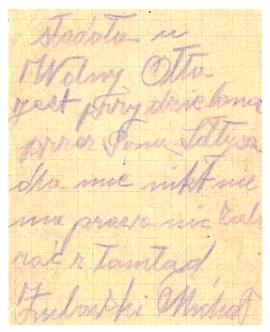 stodoła u
Wolny Otta
jest przydzielona
przez Pana Sołtysa
dla mie nikt nie
ma prawa nic zabi
rać z tamtąd
Michał